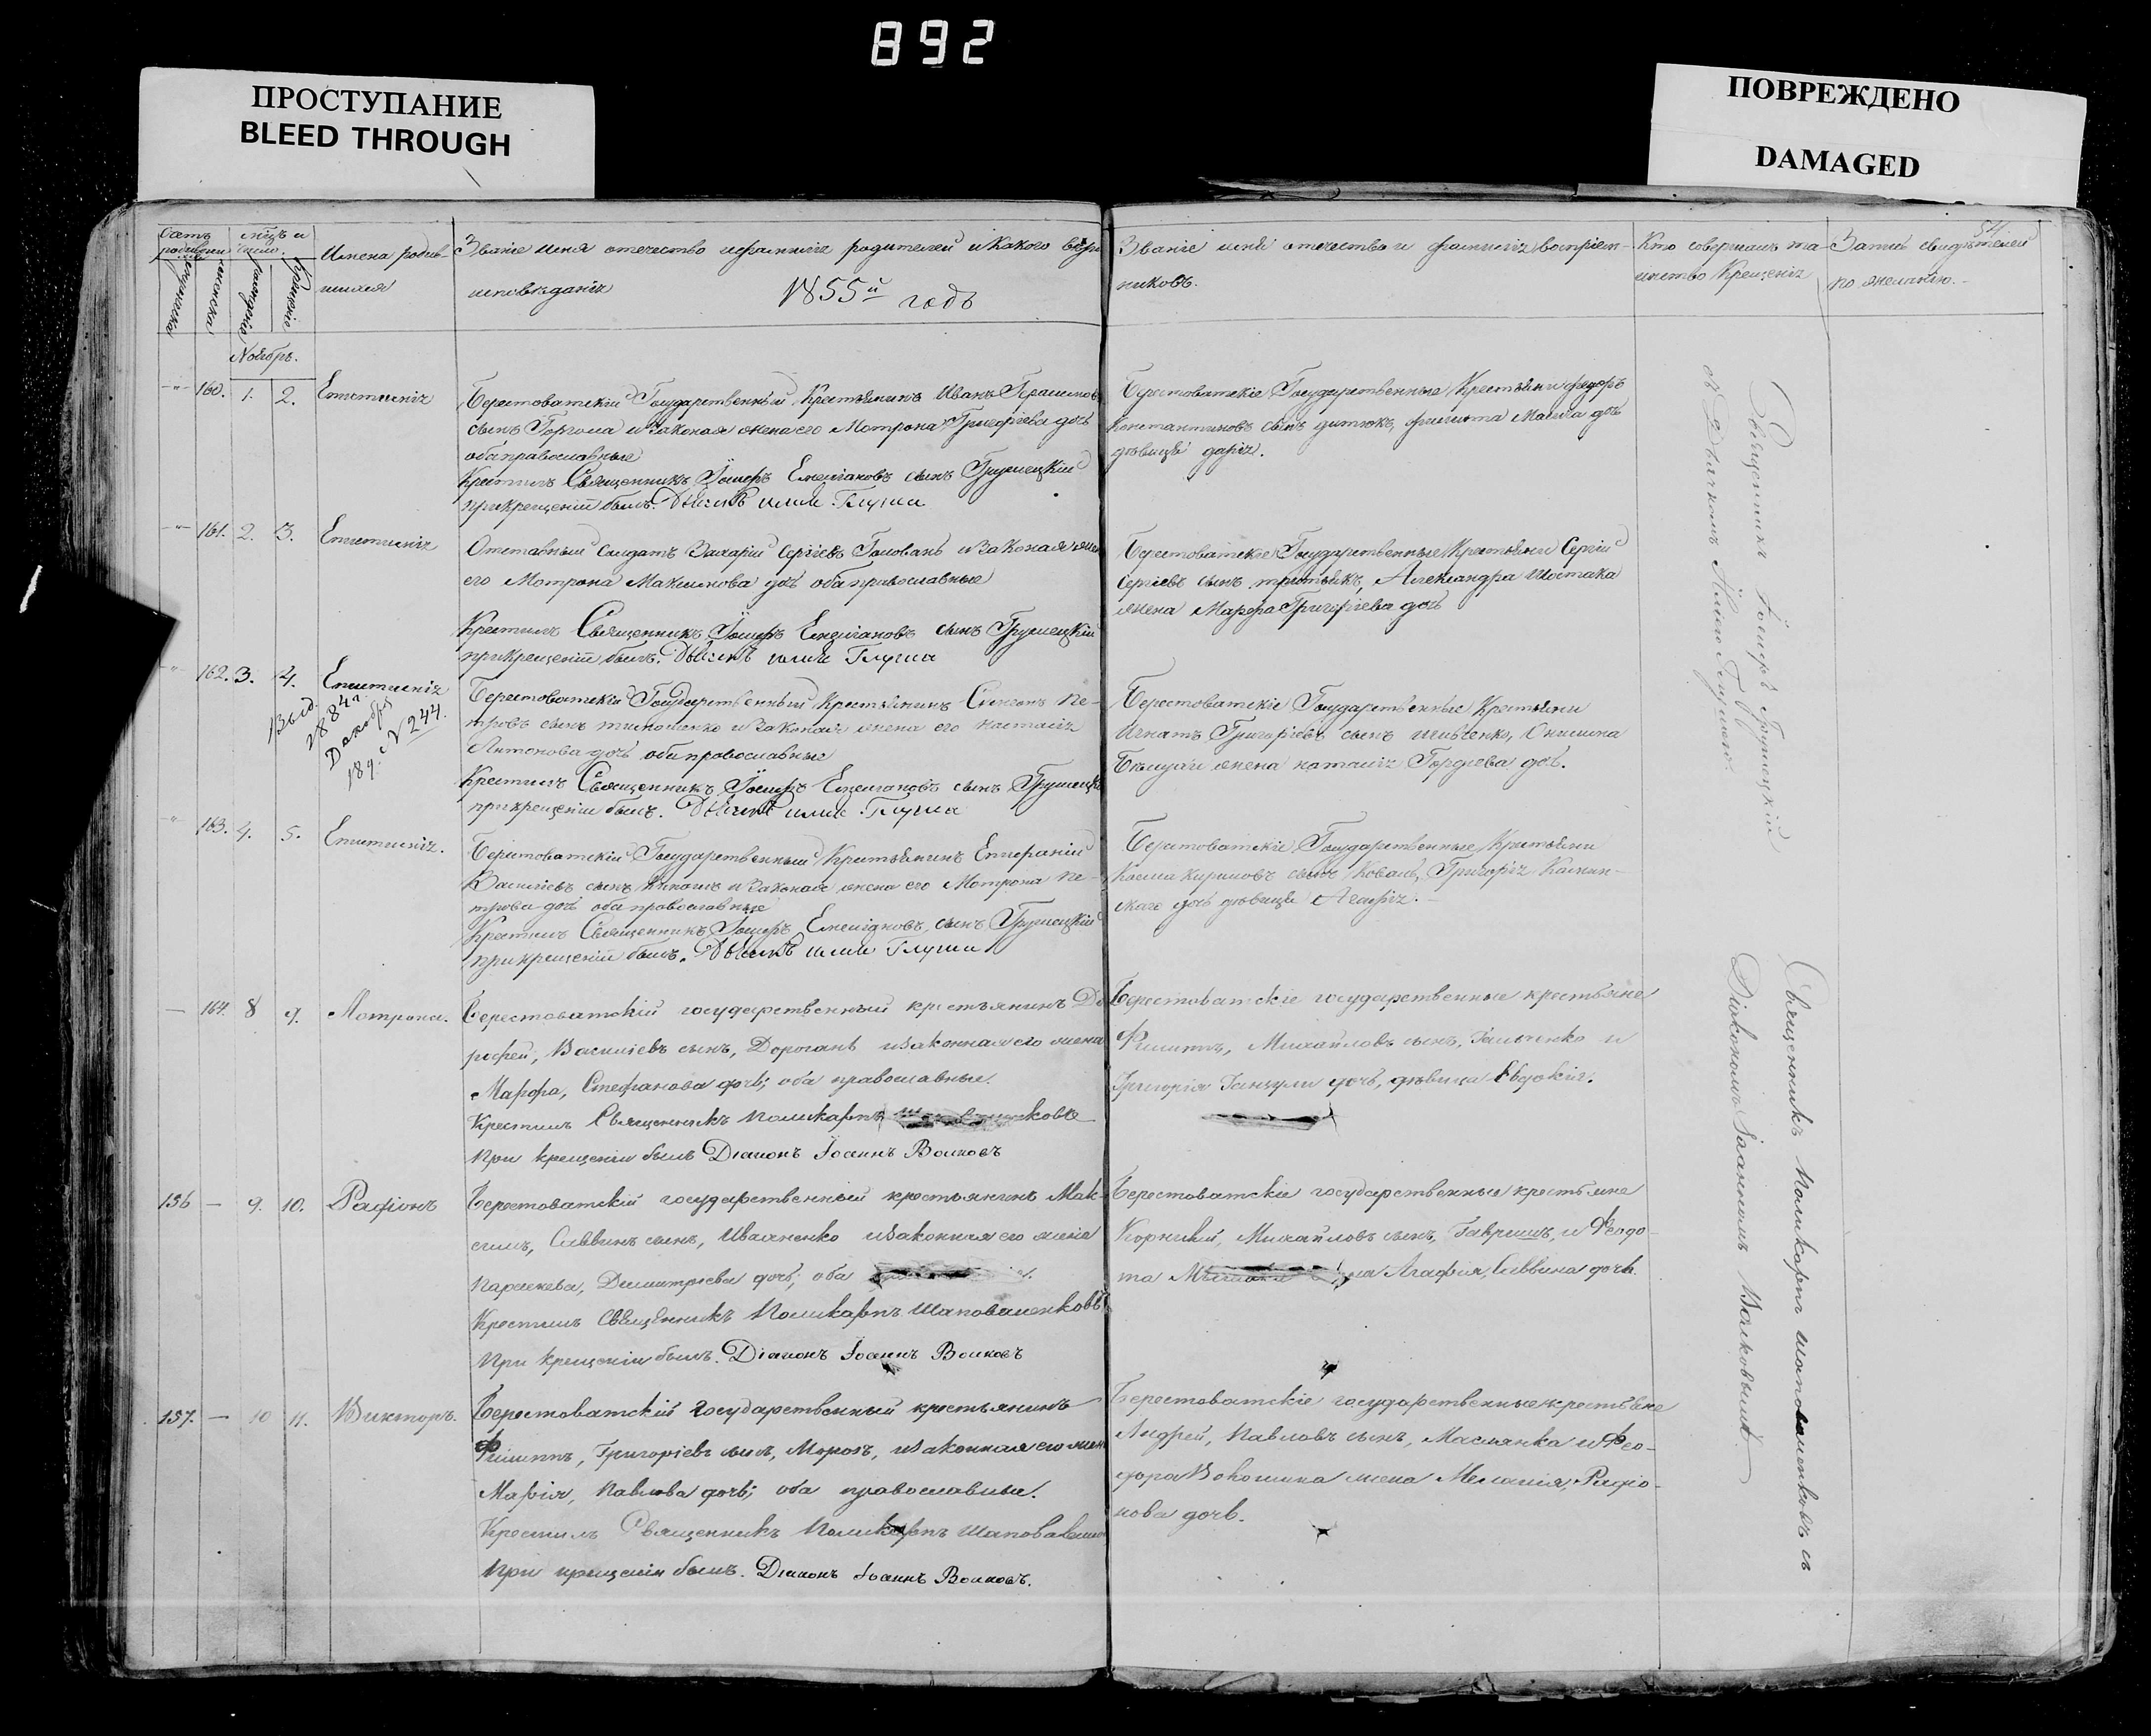 892
ПРОСТУПАНИЕ
BLEED THROUGH
ПОВРЕЖДЕНО
DAMAGED
Счетъ родившихся
мѣсяцъ и число
мужеска
женска
рожденія
крещенія
Имена родив-
шихся
Званіе имя отечество и фамилія родителей и какого вѣро
исповѣданія
1855й годъ
Званіе имя отечество и фамилія воспріем-
никовъ.
Кто совершалъ та-
инство Крещенія
Запись свидѣтелей
по желанію.
Ноябрь.
160. 1. 2. Епистимія
Берестоватскій Государственный Крестьянинъ Иванъ
сынъ и законая жена его Мотрона дочь
оба православные
Крестилъ Священникъ Іосифъ Емеліановъ сынъ Грушецкій
при крещеніи былъ. Дьячекъ Глуша
Берестоватскіе Государственные Крестьяни Федоръ
Константиновъ сынъ дитюкъ, дочь
дѣвица дарія.
161. 2. 3. Епистимія
Отставный солдатъ Захарій Сергіевъ Голованъ и законая жена
его Мотрона Максимова дочь оба православные
Крестилъ Священникъ Іосифъ Емеліановъ сынъ Грушецкій
при крещеніи былъ. Дьячекъ Глуша
Берестоватскіе Государственные Крестьяни Сергій
Сергіевъ сынъ Александра Шостака
жена Марфа Григоріева дочь
162. 3. 4. Епистимія
Выд.
1884г.
Декабря
18 д. №244.
Берестоватскій Государственный Крестьянинъ Симеонъ Пе-
тровъ сынъ тимошенко и законая жена его настасія
Антонова дочь оба православные
Крестилъ Священникъ Іосифъ Емеліановъ сынъ Грушецкій
при крещеніи былъ. Дьячекъ Глуша
Берестоватскіе Государственные Крестьяни
Игнатъ Григоріевъ сынъ шивченко, Онисима
жена наталія Гордіева дочь.
163. 4. 5. Епистимія.
Берестоватскій Государственный Крестьянинъ Епифаній
Василіевъ сынъ и законая жена его Мотрона Пе-
трова дочь оба православные
Крестилъ Священникъ Іосифъ Емеліановъ сынъ Грушецкій
при крещеніи былъ. Дьячекъ Глуша
Берестоватскіе Государственные Крестьяни
Косма Кириловъ сынъ Коваль, Григорія
дочь дѣвица Агафія.
Священникъ Іосифъ Грушецкій
съ Дьячкомъ
— 164. 8 9. Мотрона.
Берестоватскій государственный крестьянинъ До
рофей, Василіевъ сынъ, Дороганъ и законная его жена
Марфа, Стефанова дочь; оба православные.
Крестилъ Священникъ Поликарпъ
При крещеніи былъ Діаконъ Іоаннъ Волковъ
Берестоватскіе государственные крестьяне
Филиппъ, Михайловъ сынъ, и
Григорія дочь, дѣвица Евдокія.
156 — 9. 10. Радіонъ
Берестоватскій государственный крестьянинъ Мак-
симъ, Саввинъ сынъ, Иваненко и законная его жена
Параскева, Димитріева дочь; оба
Крестилъ Священникъ Поликарпъ Шаповаленковъ
При крещеніи былъ. Діаконъ Іоаннъ Волковъ
Берестоватскіе государственные крестьяне
Корнилій, Михайловъ сынъ, Гавришъ, и Феодо-
та Агафія, Саввина дочь.
157. — 10 11. Викторъ.
Берестоватскій государственный крестьянинъ
Филиппъ, Григоріевъ сынъ, Морозъ, и законная его жена
Марія, Павлова дочь; оба православные.
Крестилъ Священникъ Поликарпъ Шаповаленко
При крещеніи былъ. Діаконъ Іоаннъ Волковъ.
Берестоватскіе государственные крестьяне
Андрей, Павловъ сынъ, Маслянка и Фео-
дора Волошина жена Меланія, Радіо-
нова дочь.
Священникъ Поликарпъ Шаповаленковъ съ
Діакономъ Іоанномъ Волковымъ.